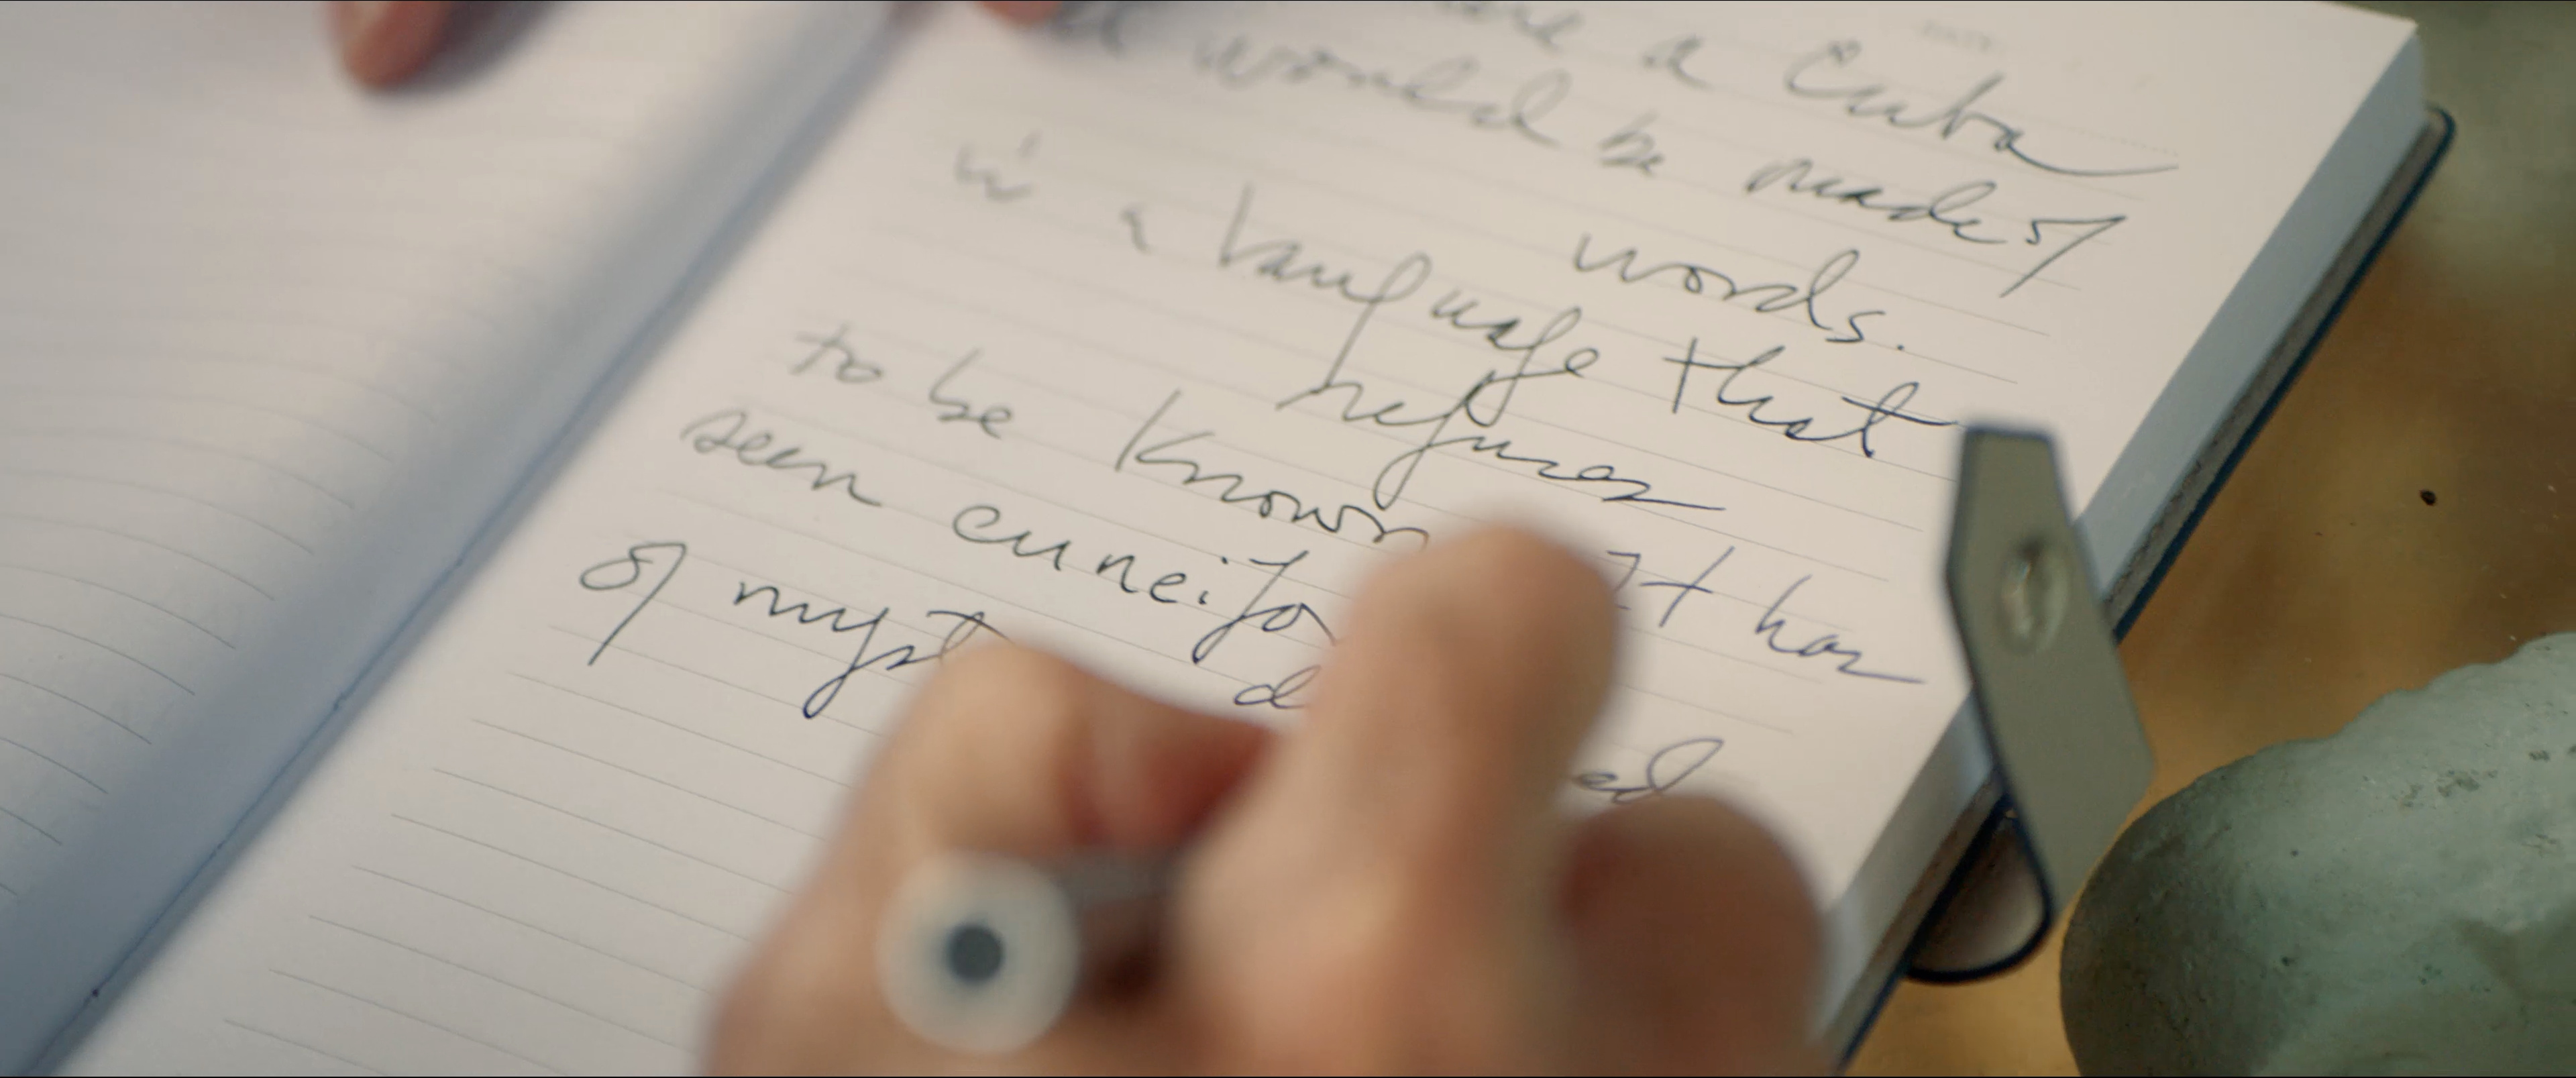 a Cuba
would be made of
words.
in a language that
refuses
to be known It has
seen cuneifo
of myst d
ed